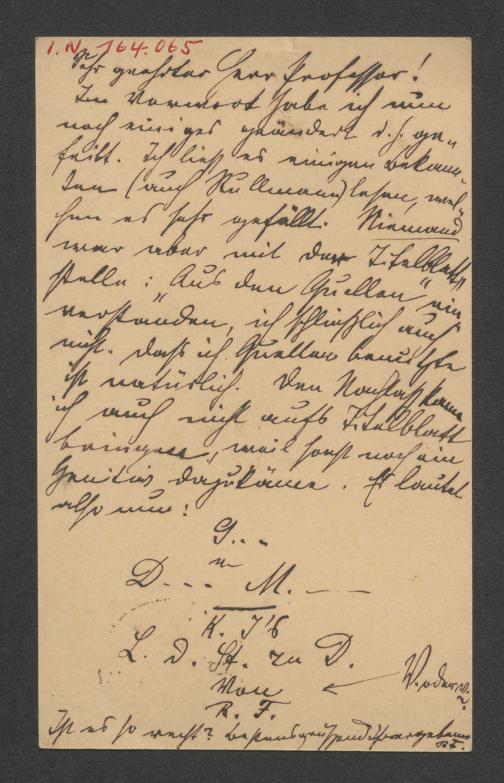 I.N. 164.065
Sehr geehrter Herr Professor!
Im Vorwort habe ich nun
noch einiges geändert d.h. ge-
feilt. Ich ließ es einigen Bekann-
ten (auch Kullmann) lesen, wel-
chen es sehr gefällt. Niemand
war aber mit der Titelblatt-
stelle: "Aus den Quellen" ein
verstanden, ich schließlich auch
nicht. Daß ich Quellen benutzte
ist natürlich. Den Nachlaß kann
ich auch nicht aufs Titelblatt
bringen, weil sonst noch ein
Genitiv dazukäme. Es lautet
also nun:
G...
D... M.
K. J's
L. d. St. zu D.
Von ← V. oder v.?
R. F.
Ist es so recht? Bestens grüßend Ihr ergebener
R.F.